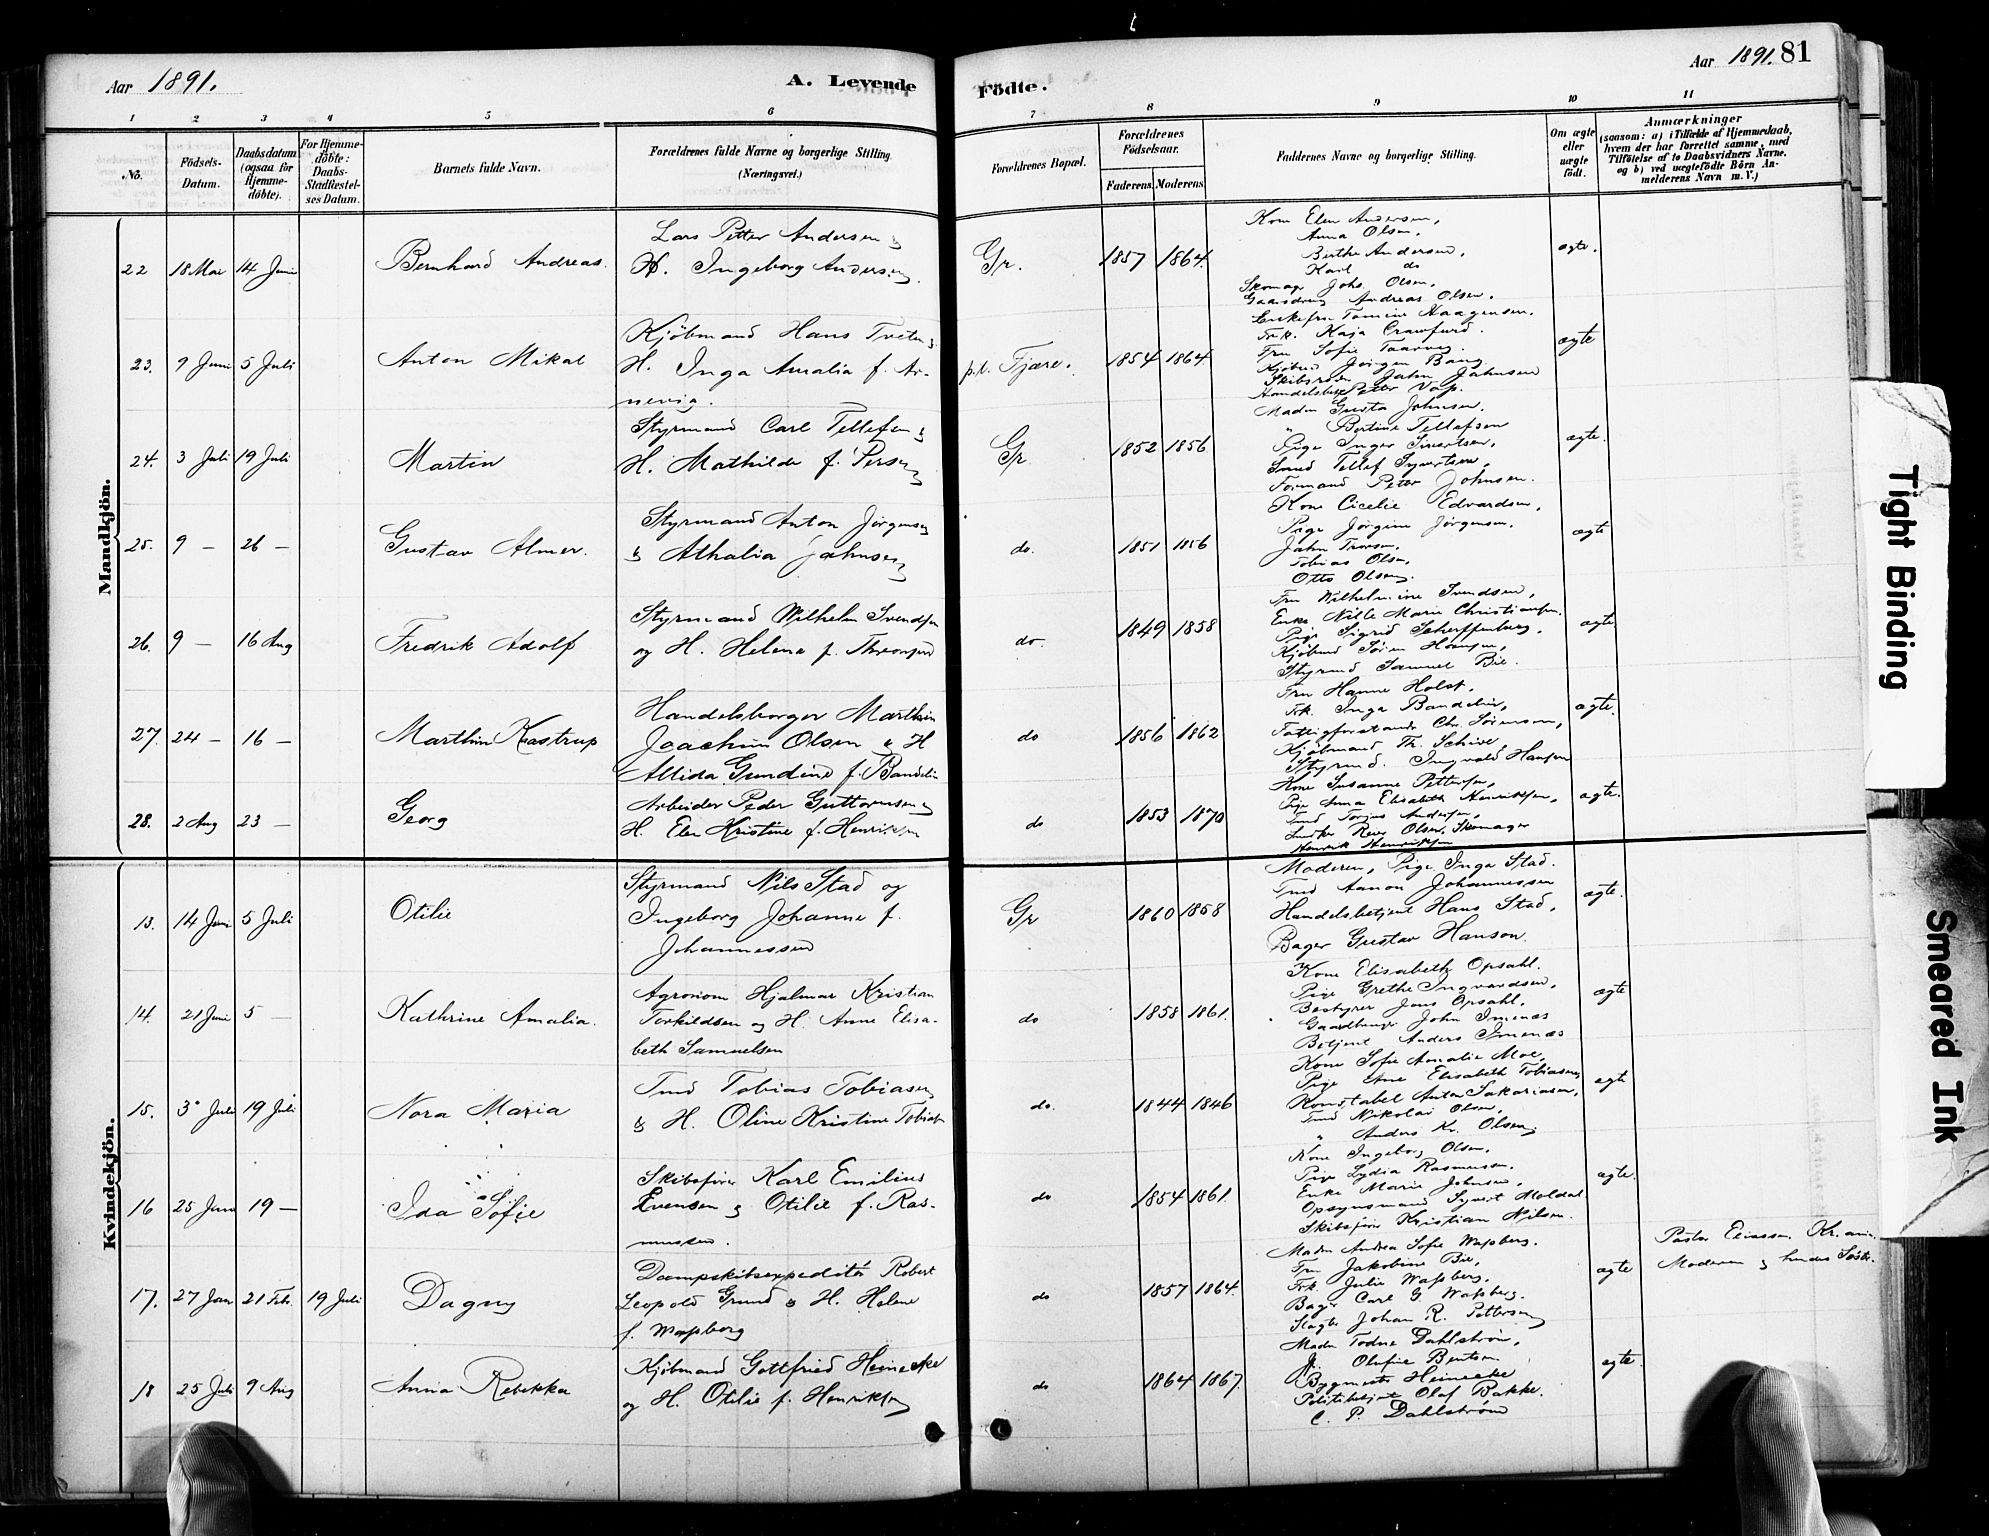 Aar 1891.
A. Levende
Födte.
Aar 1891. 81
1 2 3 4 5 6 7 8 9 10 11
No.
Födsels-
Datum.
Daabsdatum
(ogsaa for
Hjemme-
döbte).
For Hjemme-
döbte:
Daabs-
Stadfæstel-
ses Datum.
Barnets fulde Navn.
Forældrenes fulde Navne og borgerlige Stilling.
(Næringsvei.)
Forældrenes Bopæl.
Forældrenes
Födselsaar.
Faderens. Moderens.
Faddernes Navne og borgerlige Stilling.
Om ægte
eller
uægte
født.
Anmærkninger
(saasom: a) i Tilfælde af Hjemmedaab,
hvem der har forrettet samme, med
Tilføielse af to Daabsvidners Navne.
og b) ved uægtefödte Börn An-
melderens Navn m. V.)
Mandkjön.
22 18 Mai 14 Juni
Bernhard Andreas.
Lars Petter Andersen &
H. Ingeborg Andersen.
Gr.
1857 1864.
Kone Elen Andersen,
Anna Olsen,
Berthe Andersen,
Karl do
Skomager Johs. Olsen,
Andreas Olsen.
ægte.
23. 9 Juni 5 Juli
Anton Mikal
Kjöbmand Hans Tveten &
H. Inga Amalia f. Ar-
nevig.
p.t. Fjære.
1854 1864.
Enkefru Tomine Haagensen.
Frk. Kaja Crawfurd.
Fru Sofie Taarvig.
Jørgen Bang
Jahn Jahnsen
Petter Vap.
ægte
24. 3 Juli 19 Juli
Martin
Styrmand Carl Tellefsen &
H. Mathilde f. Persen
Gr.
1852 1856
Madm Gusta Johnsen.
" Bertine Tellefsen
Pige Inger Sivertsen,
Smed Tellef Syvertsen,
Formand Peter Johnsen.
ægte.
25. 9 — 26 —
Gustav Almer.
Styrmand Anton Jørgensen
& Athalia Jahnsen
do.
1851 1856
Kone Cicelie Edvardsen,
Pige Jørgine Jørgensen.
Jahn
Tobias Olsen,
Otto Olsen.
ægte
26. 9 — 16 Aug
Fredrik Adolf
Styrmand Wilhelm Svendsen
og H. Helena f. Thronsen
do.
1849 1858
Fru Wilhelmine Svendsen,
Enke Nille Marie Christiansen.
Pige Sigrid Scherffenberg,
Kjöbmd Sören Hansen,
Styrmd Samuel Bie.
ægte
27. 24 — 16 —
Marthin Kastrup
Handelsborger Marthin
Joachim Olsen & H
Allida Gundine f. Bandelin
do
1856 1862
Fru Hanne Holst,
Frk. Inga Bandelin,
Fattigforstander Chr. Sørensen,
Kjöbmand Th. Schive,
Styrmd. Ingvald Hansen
ægte.
28. 2 Aug 23 —
Georg
Arbeider Peder Guttormsen &
H. Elen Kristine f. Henriksen
do
1853 1870
Kone Susanne Pettersen,
Pige Anna Elisabeth Henriksen,
Tmd Torjus Andersen,
Olsen, Skomager
Henrik Henriksen
ægte.
Kvindekjön.
13. 14 Juni 5 Juli
Otilie
Styrmand Nils Stad og
Ingeborg Johanne f.
Johannessen
Gr
1860 1858
Moderen, Pige Inga Stad.
Tmd Aanon Johannessen
Handelsbetjent Hans Stad,
Bager Gustav Hanson.
ægte.
14. 21 Juni 5 —
Kathrine Amalia.
Agronom Hjalmar Kristian
Torkildsen og H. Anne Elisa-
beth Samuelsen
do
1858 1861.
Kone Elisabeth Opsahl.
Pige Grethe Ingvardsen,
Bestyrer Jens Opsahl,
John Imenæs
Betjent Anders Imenæs
ægte
15. 3 Juli 19 Juli
Nora Maria
Tmd Tobias Tobiasen
& H. Oline Kristine Tobias
do.
1844 1846
Kone Sofie Amalie Moe,
Pige Ane Elisabeth Tobiasen,
Konstabel Anton Sakariasen,
Tmd Nikolai Olsen,
" Anders Kr. Olsen.
ægte
16 25 Juni 19 —
Ida Sofie
Skibsfører Karl Emilius
Evensen & Otilie f. Ras-
mussen.
do
1854 1861.
Kone Ingeborg Olsen,
Pige Lydia Rasmussen.
Enke Marie Johnsen,
Opsynsmand Syvert Moldal
Skibsfører Kristian Nilsen.
ægte.
17. 27 Jan 21 Feb. 19 Juli
Dagny
Dampskibsexpeditör Robert
Leopold Grund & H. Helene
f. Wassberg
do
1857 1864.
Madm Andrea Sofie Wassberg.
Fru Jakobine Bie,
Frk. Julie Wassberg.
Bager Carl G. Wassberg.
Slagter Johan R. Pettersen
ægte
Pastor Eriassen Kr.ania
Moderen & hendes Søster
18 25 Juli 9 Aug
Anna Rebekka
Kjöbmand Gottfried Heinecke
og H. Otilie f. Henriksen
do
1864 1867.
Madm Todne Dahlstrøm,
Olufine Bentsen
Bygmester Heinecke
Politibetjent Olaf Bakke.
C. P. Dahlstrøm
ægte.
Tight Binding
Smeared Ink